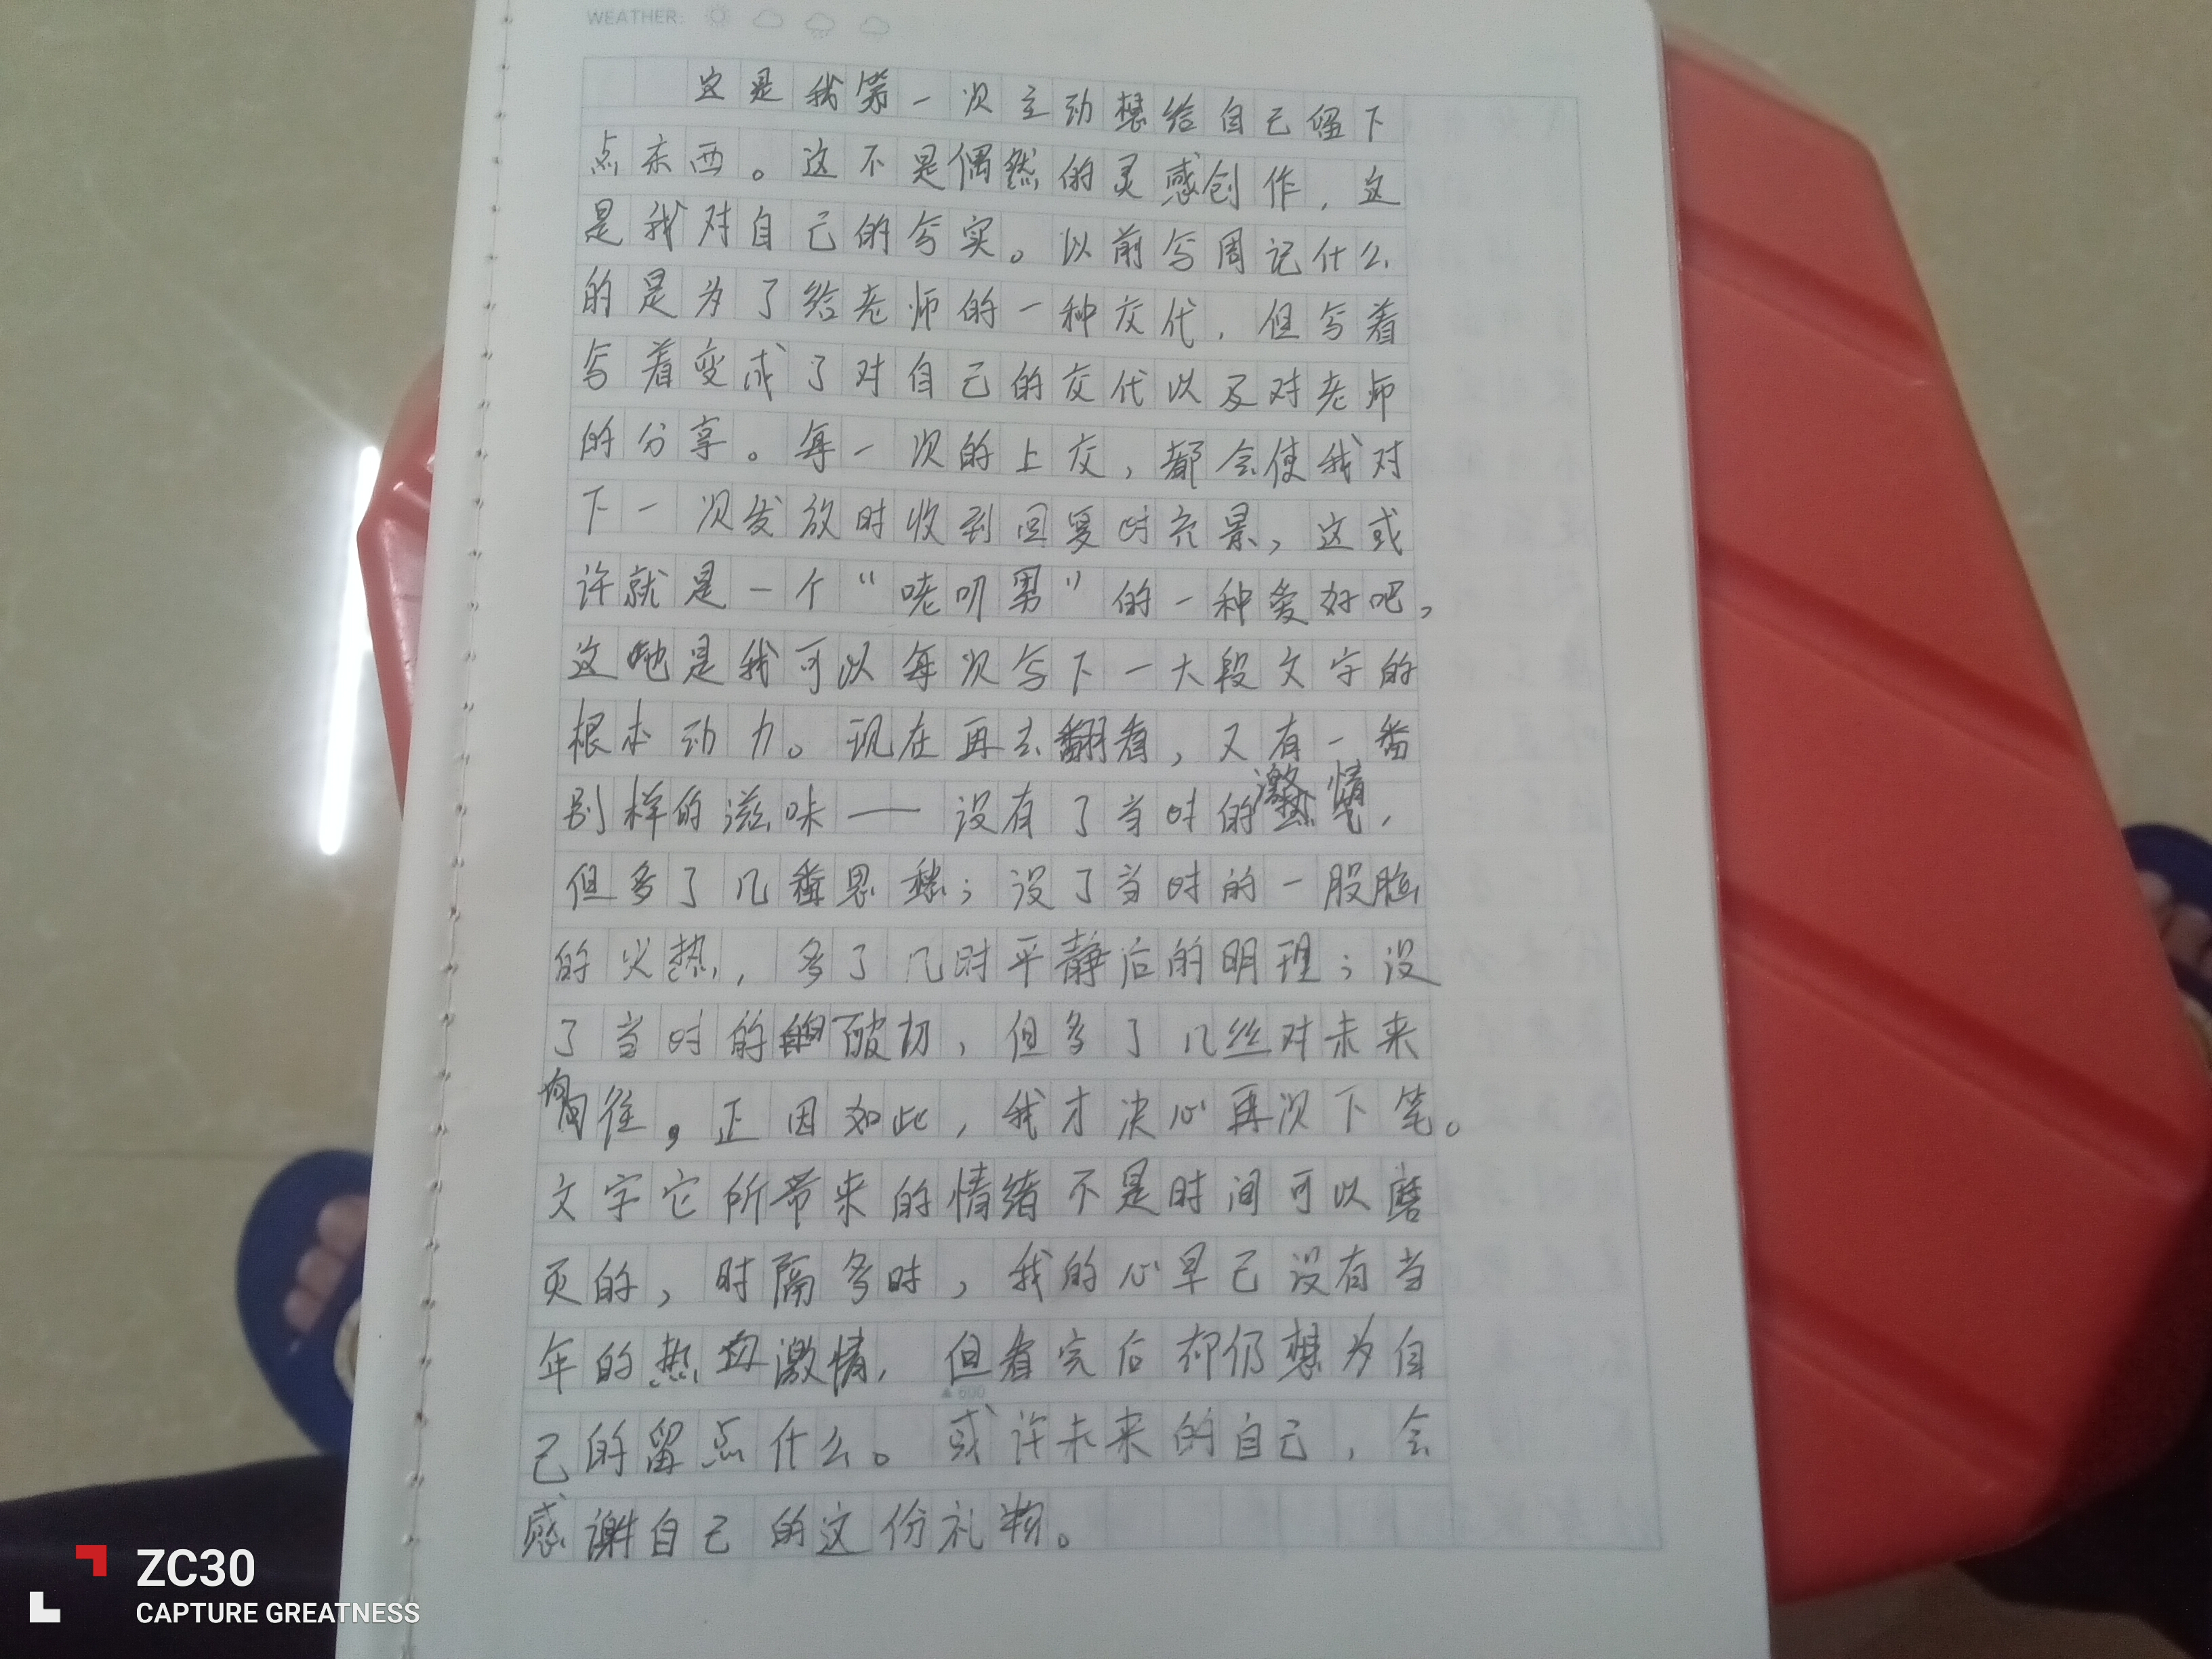 WEATHER:
这是我第一次主动想给自己留下
点东西。这不是偶然的灵感创作，这
是我对自己的写实。以前写周记什么
的是为了给老师的一种交代，但写着
写着变成了对自己的交代以及对老师
的分享。每一次的上交，都会使我对
下一次发放时收到回复时充景，这或
许就是一个“唠叨男”的一种爱好吧，
这也是我可以每次写下一大段文字的
根本动力。现在再去翻看，又有一番
别样的滋味——没有了当时的激情，
但多了几番思愁；没了当时的一股脑
的火热，多了几时平静后的明理；没
了当时的切，但多了几丝对未来
向往，正因如此，我才决心再次下笔。
文字它所带来的情绪不是时间可以磨
灭的，时隔多时，我的心早已没有当
年的热血激情，但看完后却仍想为自
己的留点什么。或许未来的自己，会
感谢自己的这份礼物。
▲600
ZC30
CAPTURE GREATNESS